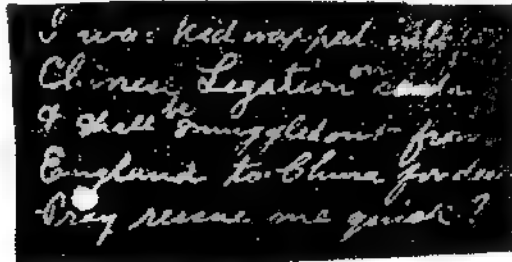 I was kidnapped into
Chinese Legation on
& shall be smuggled out from
England to China for death
Pray rescue me quick!